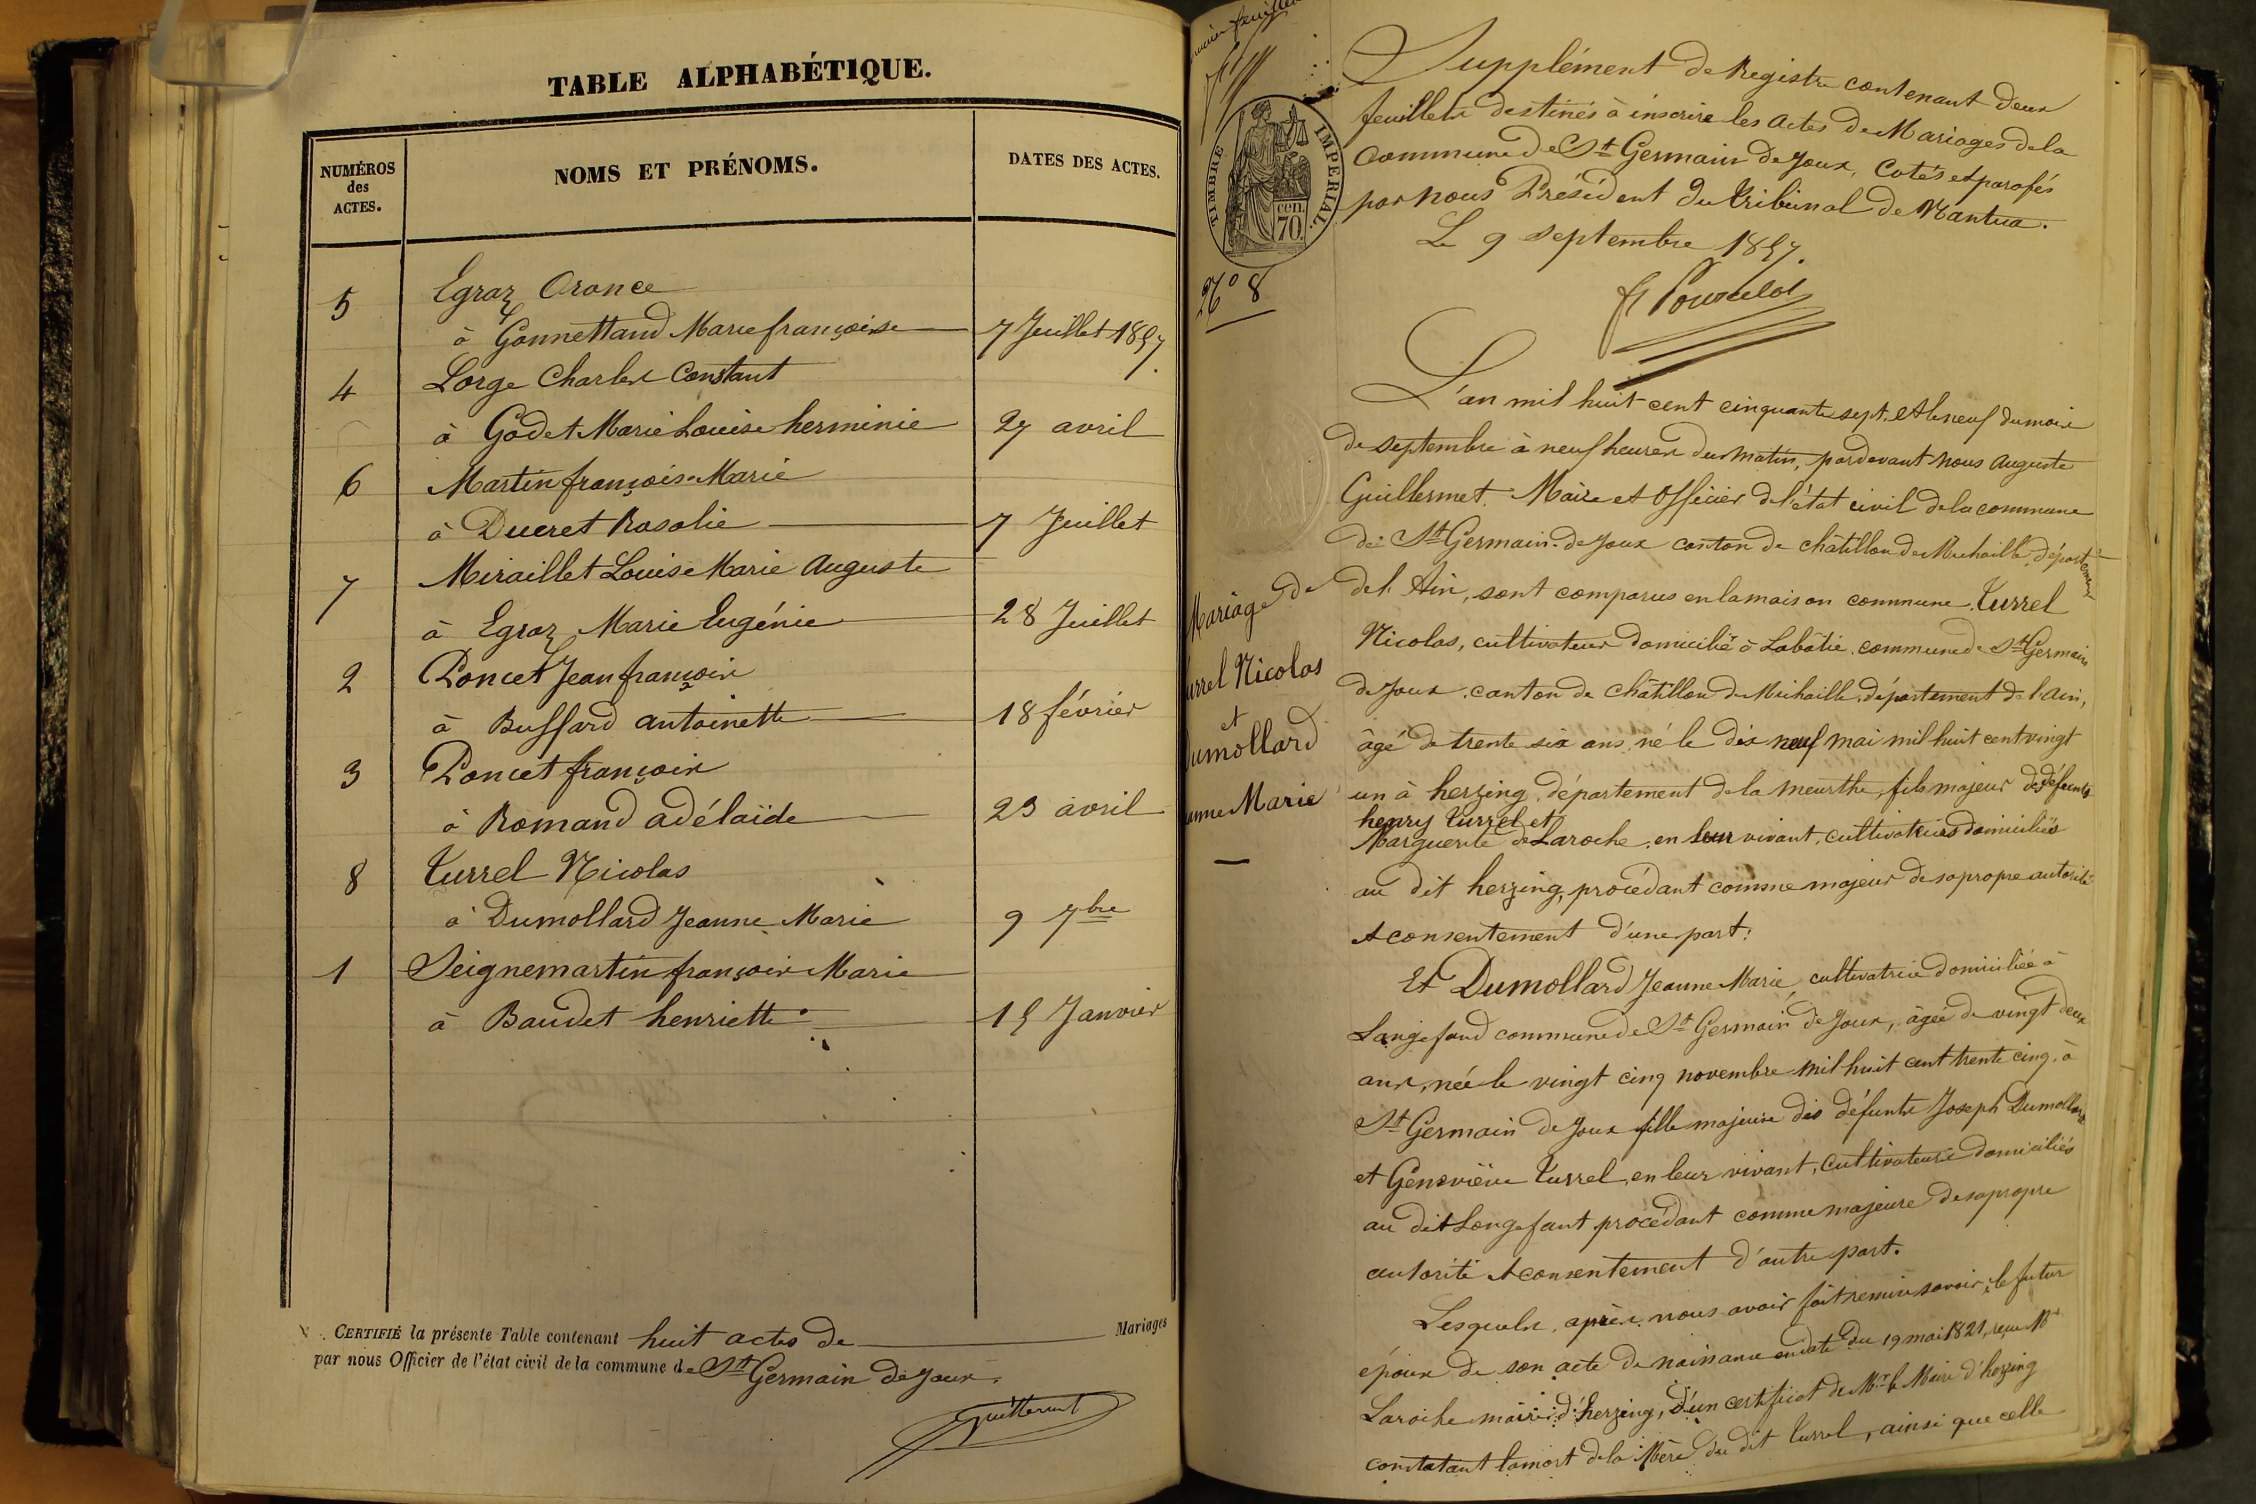 TABLE ALPHABÉTIQUE.
NUMÉROS
des
ACTES.
NOMS ET PRÉNOMS.
DATES DES ACTES.
5 Egraz Oronce
à Gonnettand Marie françoise 7 Juillet 1857.
4 Lorge Charles Constant
à Godet Marie Louise herminie 27 avril
6 Martin françois Marie
à Ducret Rosalie 7 Juillet
7 Miraillet Louis Marie Auguste
à Egraz Marie Eugénie 28 Juillet
2 Poncet Jean françois
à Buffard antoinette 18 février
3 Poncet françois
à Romand adélaïde 23 avril
8 Turrel Nicolas
à Dumollard Jeanne Marie 9 7bre
1 Seignemartin françois Marie
à Baudet henriette 15 Janvier
CERTIFIÉ la présente Table contenant huit actes de Mariages
par nous Officier de l'état civil de la commune de St Germain de Joux.
Guillermet
TIMBRE IMPERIAL.
70 cen.
No 8
Supplément de Registre contenant deux
feuillets destinés à inscrire les actes de Mariages de la
Commune de St Germain de Joux, Cotés et parafés
par nous Président du tribunal de Nantua.
Le 9 septembre 1857.
Mariage de
urrel Nicolas
et
umollard
anne Marie
L'an mil huit cent cinquante sept, et le neuf du mois
de septembre à neuf heures du matin, pardevant nous auguste
Guillermet Maire et officier de l'état civil de la commune
de St Germain-de Joux canton de châtillon de Michaille, département
de l'Ain, sont comparus en la maison commune, Turrel
Nicolas, cultivateur domicilié à Labâtie, commune de St Germain
de Joux, canton de Châtillon de Michaille, département de l'ain,
âgé de trente six ans, né le dix neuf mai mil huit cent vingt
un à herzing, département de la meurthe, fils majeur des défunts
henry Turrel et
Marguerite de Laroche, en leur vivant, cultivateurs domiciliés
au dit herzing, procédant comme majeur de sa propre autorité
et consentement d'une part:
Et Dumollard Jeanne Marie, cultivatrice domiciliée à
Longefand commune de St Germain de Joux, âgée de vingt deux
ans, née le vingt cinq novembre mil huit cent trente cinq, à
St Germain de Joux fille majeure des défunts Joseph Dumollard
et Geneviève Turrel, en leur vivant, cultivateurs domiciliés
au dit Longefant procédant comme majeure de sa propre
autorité et consentement d'autre part.
Lesquels, après nous avoir fait remise savoir, le futur
époux de son acte de naissance en date du 19 mai 1821, reçu Mr
Laroche maire d'herzing, d'un certificat de Mr le Maire d'herzing
constatant la mort de la Mère du dit Turrel, ainsi que celle